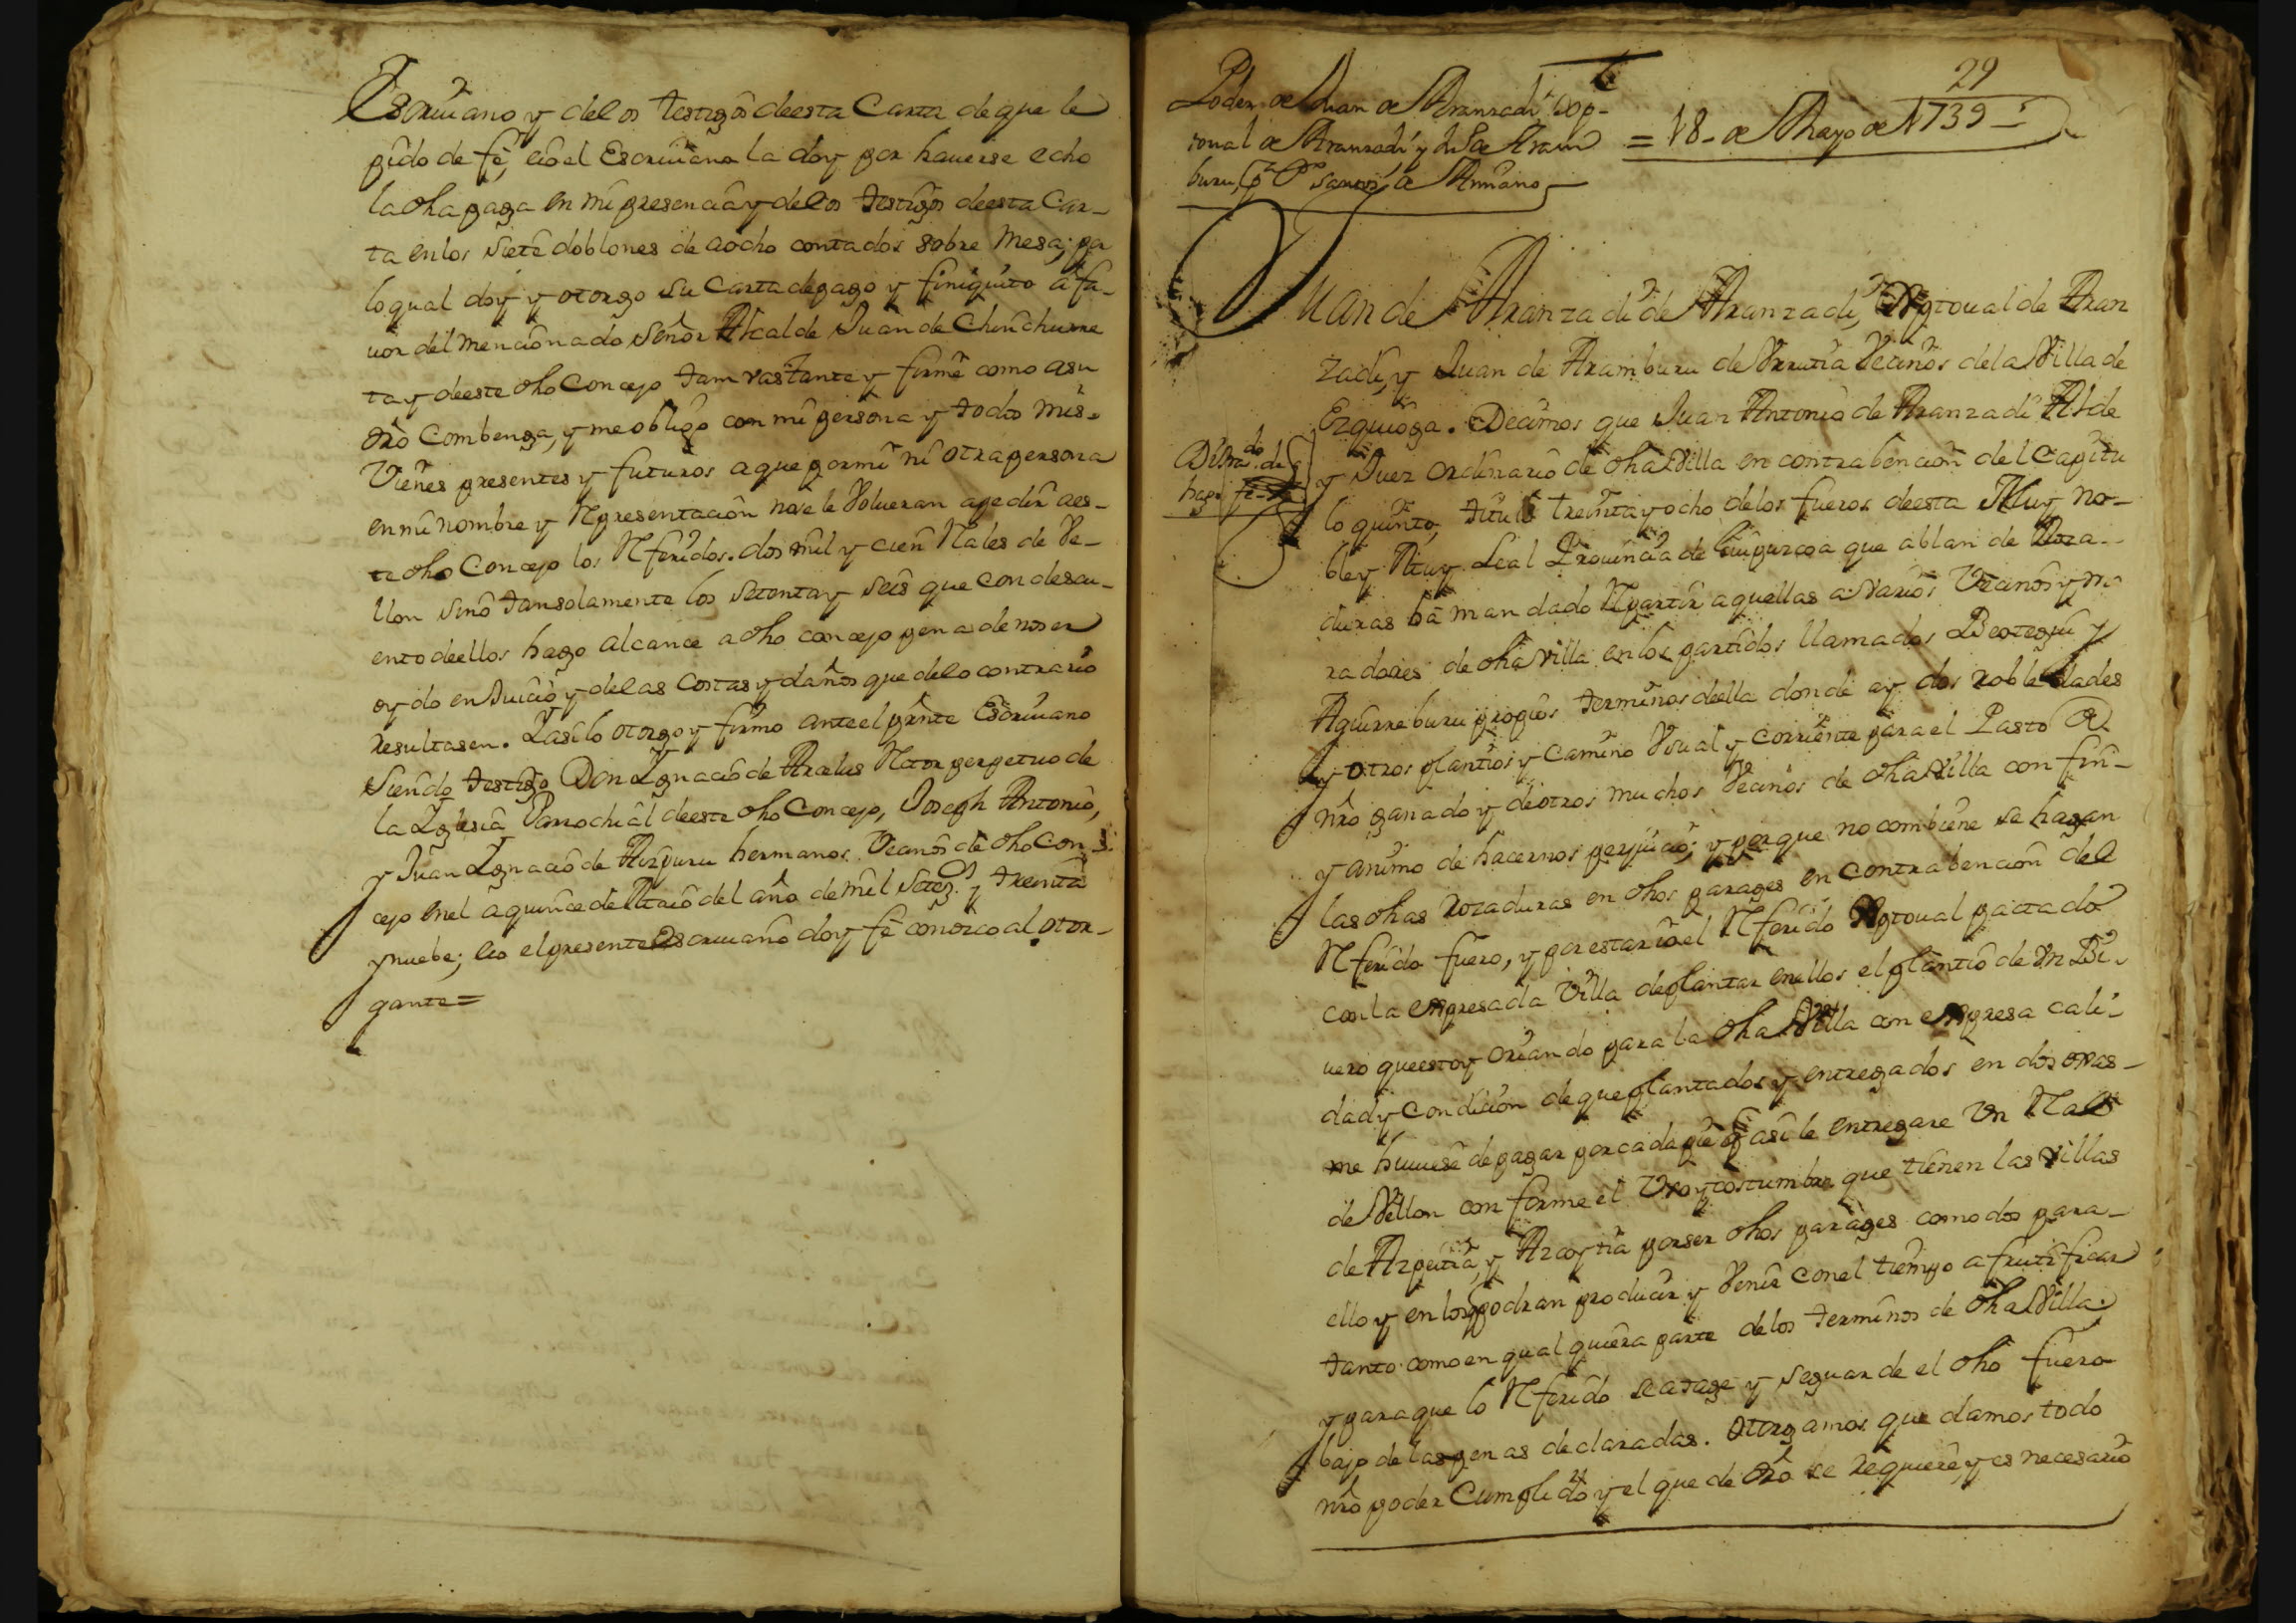 Escriuano y delos testigos deesta Carta deque le
pido de fê, eio el Escriuano la doy por hauerse echo
la dha paga en mi presencia y delos testigos deesta Car-
ta enlos siete doblones de aocho contados sobre mesa; por
loqual doy y otorgo su Carta depago y finiquito a fa-
uor del mencionado Señor Alcalde Juan de Chinchurre
ta y deeste dho Concejo tam vastante y firme como asu
dr̃o Combenga, y me obligo con mi persona y todos mis
Vienes presentes y futuros aque por mi ni otra persona
en mi nombre y Rpresentacion nose le Volueran apedir aes-
te dho Concejo los Rferidos dos mil y cien Rales de Ve-
llon sino tansolamente los setenta y seis que con descu-
ento deellos hago alcance adho concejo pena de noser
oydo en Juicio y delas costas y daños que delo contrario
resultasen. Yasi lo otorgo y firmo ante el pr̃nte Escriuano
Siendo testigos Don Ygnacio de Rtor perpetuo de
la Yglesia Parrochial deeste dho Concejo, Joseph Antonio,
y Juan Ygnacio de Aizpuru hermanos Vecinos de dho Con-
cejo enel aquince de Maio del año de mil setez.os y treinta
ynuebe; eio el presente Escriuano doy fê conozco al otor-
gante=
29
Poder de Juan de Aranzadi
de Aranzadi, y Ju.o de Aram
buru, p.a P.o Santos de Amiano
= 18 - de Mayo de 1739 =
Juan de Aranzadi de Aranzadi, de Aran
zadi, y Juan de Aramburu de Urrutia Vecinos dela Villa de
Ezquioga. Decimos que Juan Antonio de Aranzadi Al.de
y Juez ordinario de dha Villa en contrabencion del Capitu
lo quinto, titulo treinta y ocho delos fueros deesta Muy No-
ble y Muy Leal Prouincia de Guipuzcoa que ablan de Roza-
duras hâ mandado Rpartir aquellas a varios Vecinos y mo
radores de dha Villa enlos partidos llamados Beotegui y
Aguirreburu propios terminos deella donde ay dos robledades
y otros plantios y Camino Vsual y corriente para el Pasto de
nr̃o ganado y de otros muchos Vecinos de dha Villa con fin
y animo de hacernos perjuicio; y porque no combiene se hagan
las dhas Rozaduras en dhos parages en contrabencion del
Rferido fuero, y por estar io el Rferido pactado
con la expresada Villa deplantar enellos el plantio de un Bi-
uero que estoy criando para la dha Villa con expresa cali-
dad y condicion de que plantados y entregados en dos oxas
me huuiese de pagar por cada pie q asi le entregare Vn Ral
de Vellon conforme el Vso y costumbre que tienen las villas
de Azpeitia, y Azcoytia por ser dhos parages comodos para
ello y en los q podran producir y Venir con el tiempo a frutificar
tanto como en qual quiera parte delos terminos de dha Villa.
y para que lo Rferido se ataje y se guarde el dho fuero
bajo de las penas declaradas. Otorgamos que damos todo
nr̃o poder Cumplido y el que de dr̃o se requiere, y es necesario